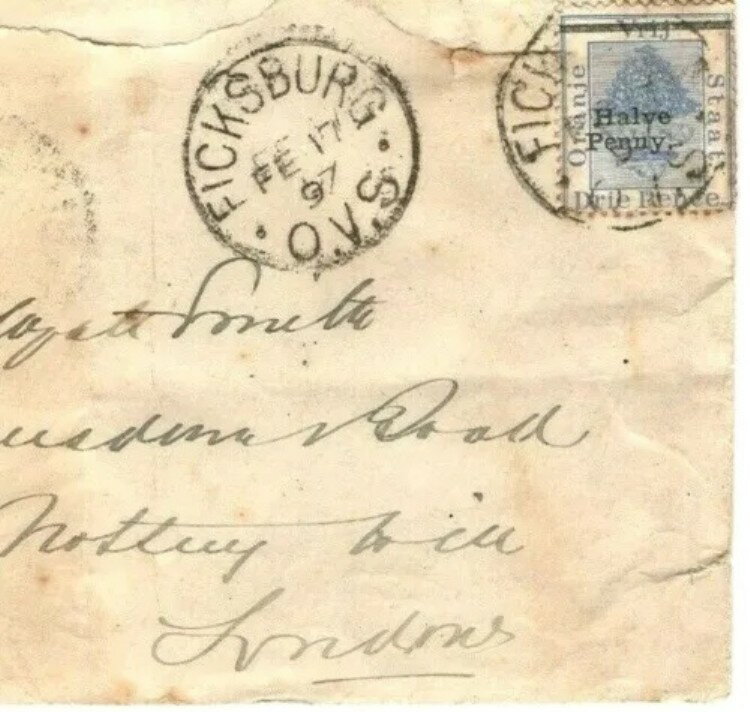 FICKSBURG
FE 17
97
O.V.S.
Vrij
Oranje
Staat
Halve
Penny.
Drie Pence
FIC
Smith
Road
Notting hill
London